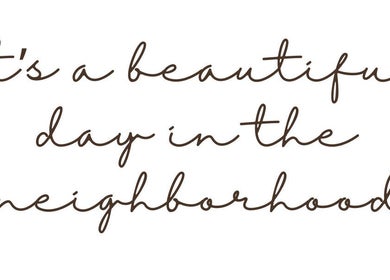 t's a beautifu
day in the
neighborhood